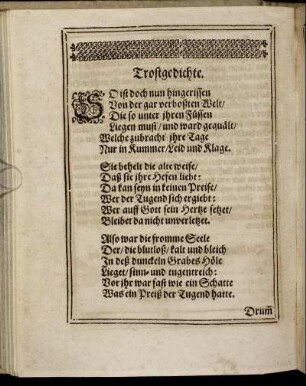 Trostgedichte.
SO ist doch nun hingerissen
Von der gar verboßten Welt/
Die so unter jhren Füssen
Liegen must/ und ward gequält/
Welche zubracht jhre Tage
Nur in Kummer/ Leid und Klage.
Sie behelt die alte weise/
Daß sie jhre Hefen liebe:
Da kan seyn in keinen Preise/
Wer der Tugend sich ergiebt:
Wer auff Gott sein Hertze setzet/
Bleibet da nicht unverletzet.
Also war die fromme Seele
Der/ die blutloß/ kalt und bleich
In deß dunckeln Grabes Höle
Lieget/ sinn- und tugentreich:
Vor jhr war fast wie ein Schatte
Was ein Preiß der Tugend hatte.
Drum̃